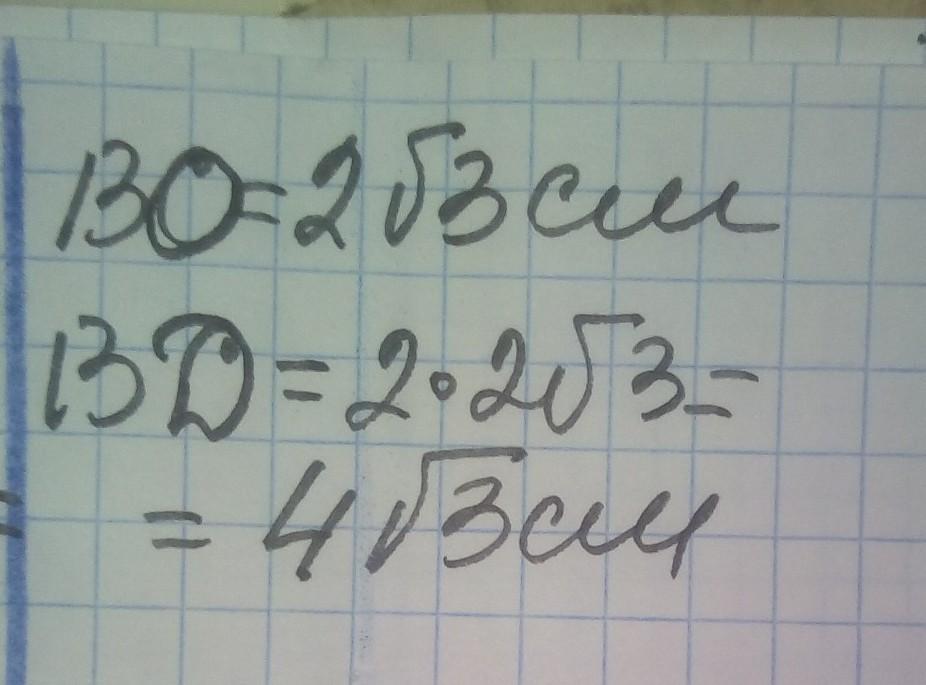 BO=2√3см
BD=2·2√3=
=4√3см